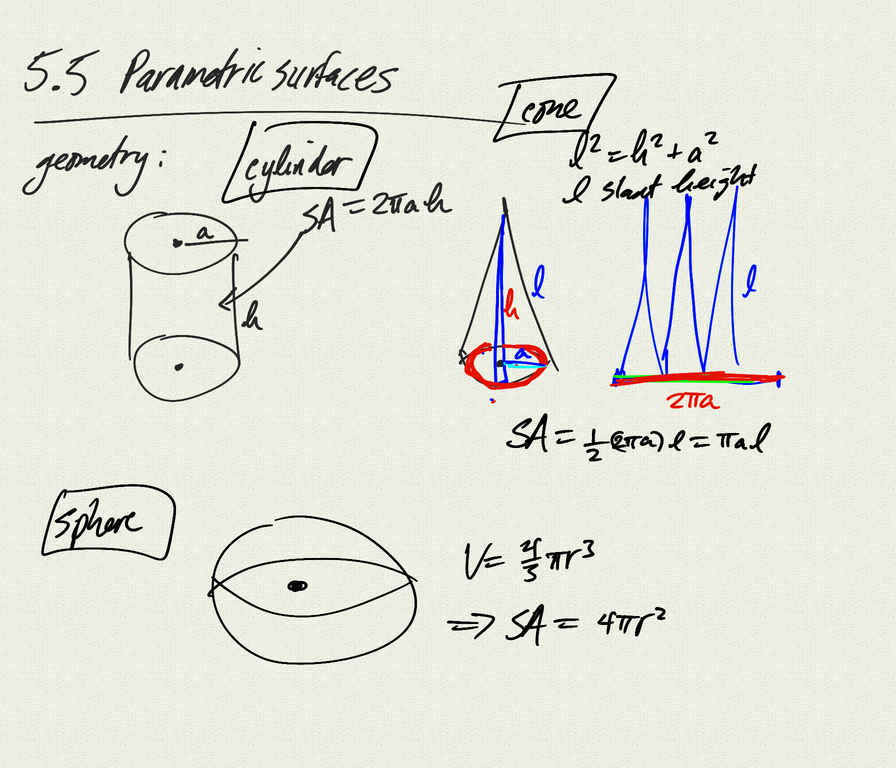 5.5 Parametric surfaces
geometry:
cylinder
SA = 2πah
a
h
cone
l² = h² + a²
l slant height
h
l
a
l
2πa
SA = 1/2 (2πa) l = πal
sphere
V = 4/3 πr³
⇒ SA = 4πr²